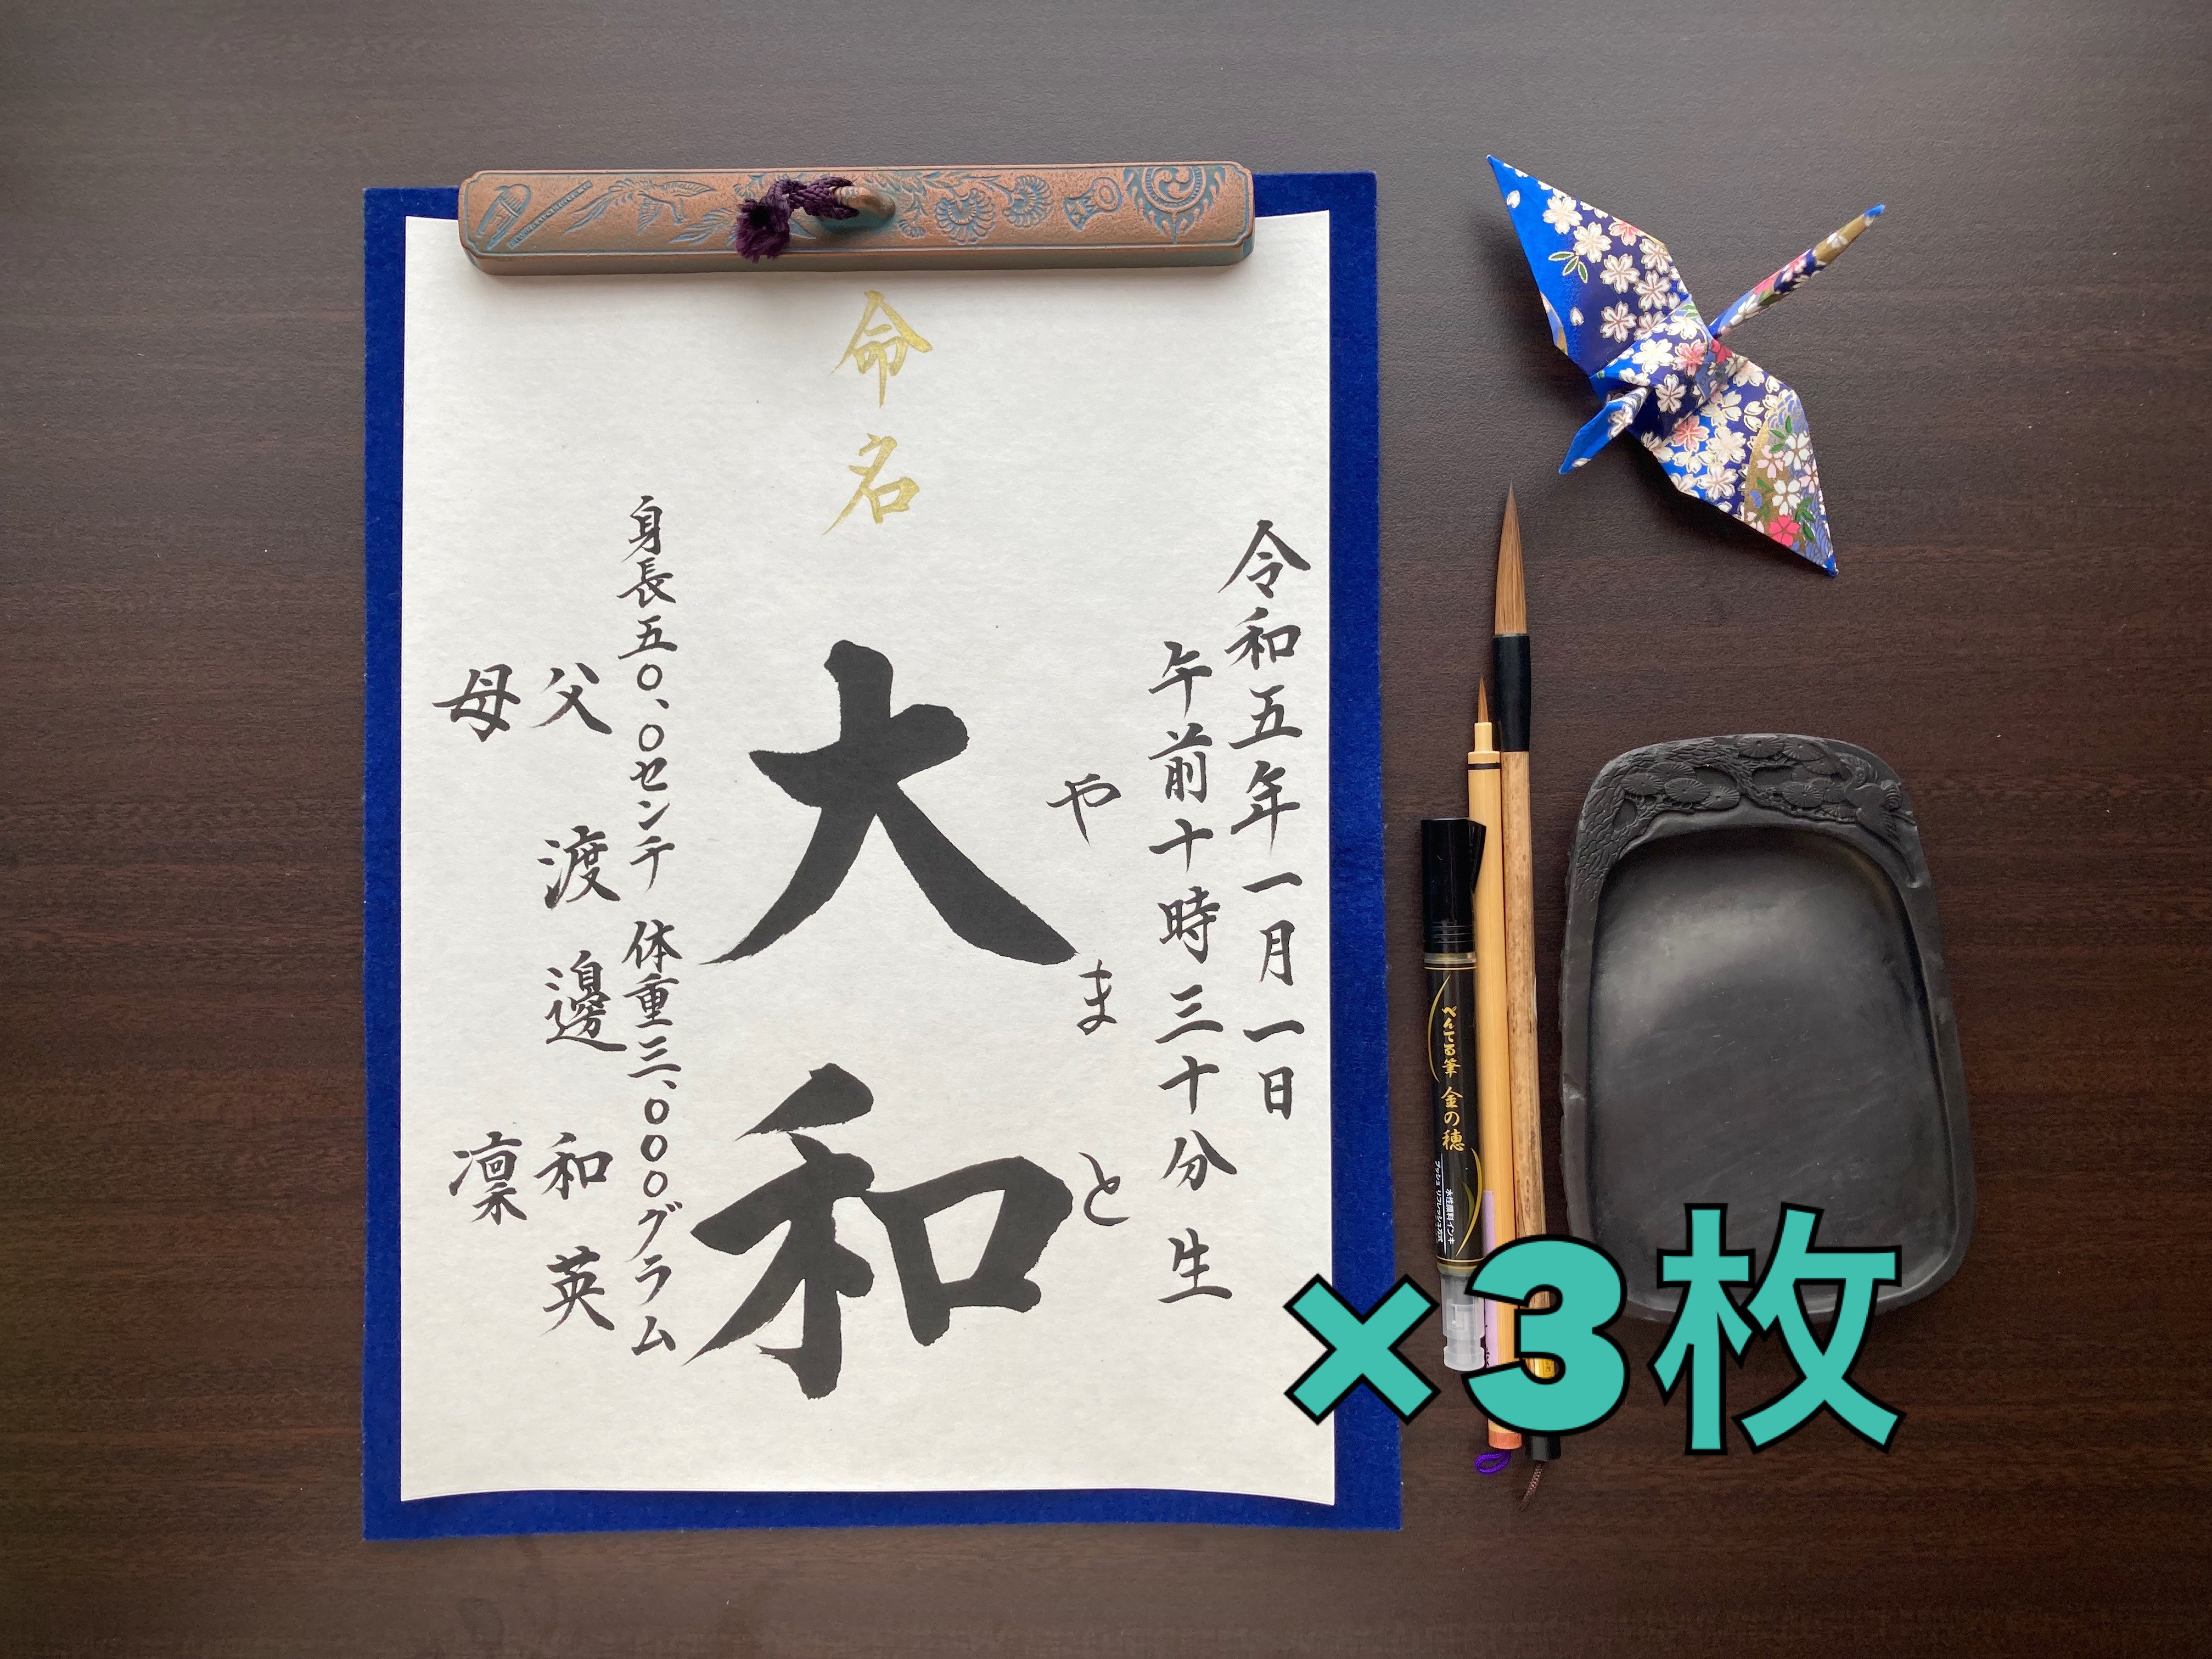 命名
令和五年一月一日
午前十時三十分生
やまと
大和
身長五〇、〇センチ 体重三、〇〇〇グラム
父 渡邊 和英
母 凛
べんてる筆 金の穂
×3枚